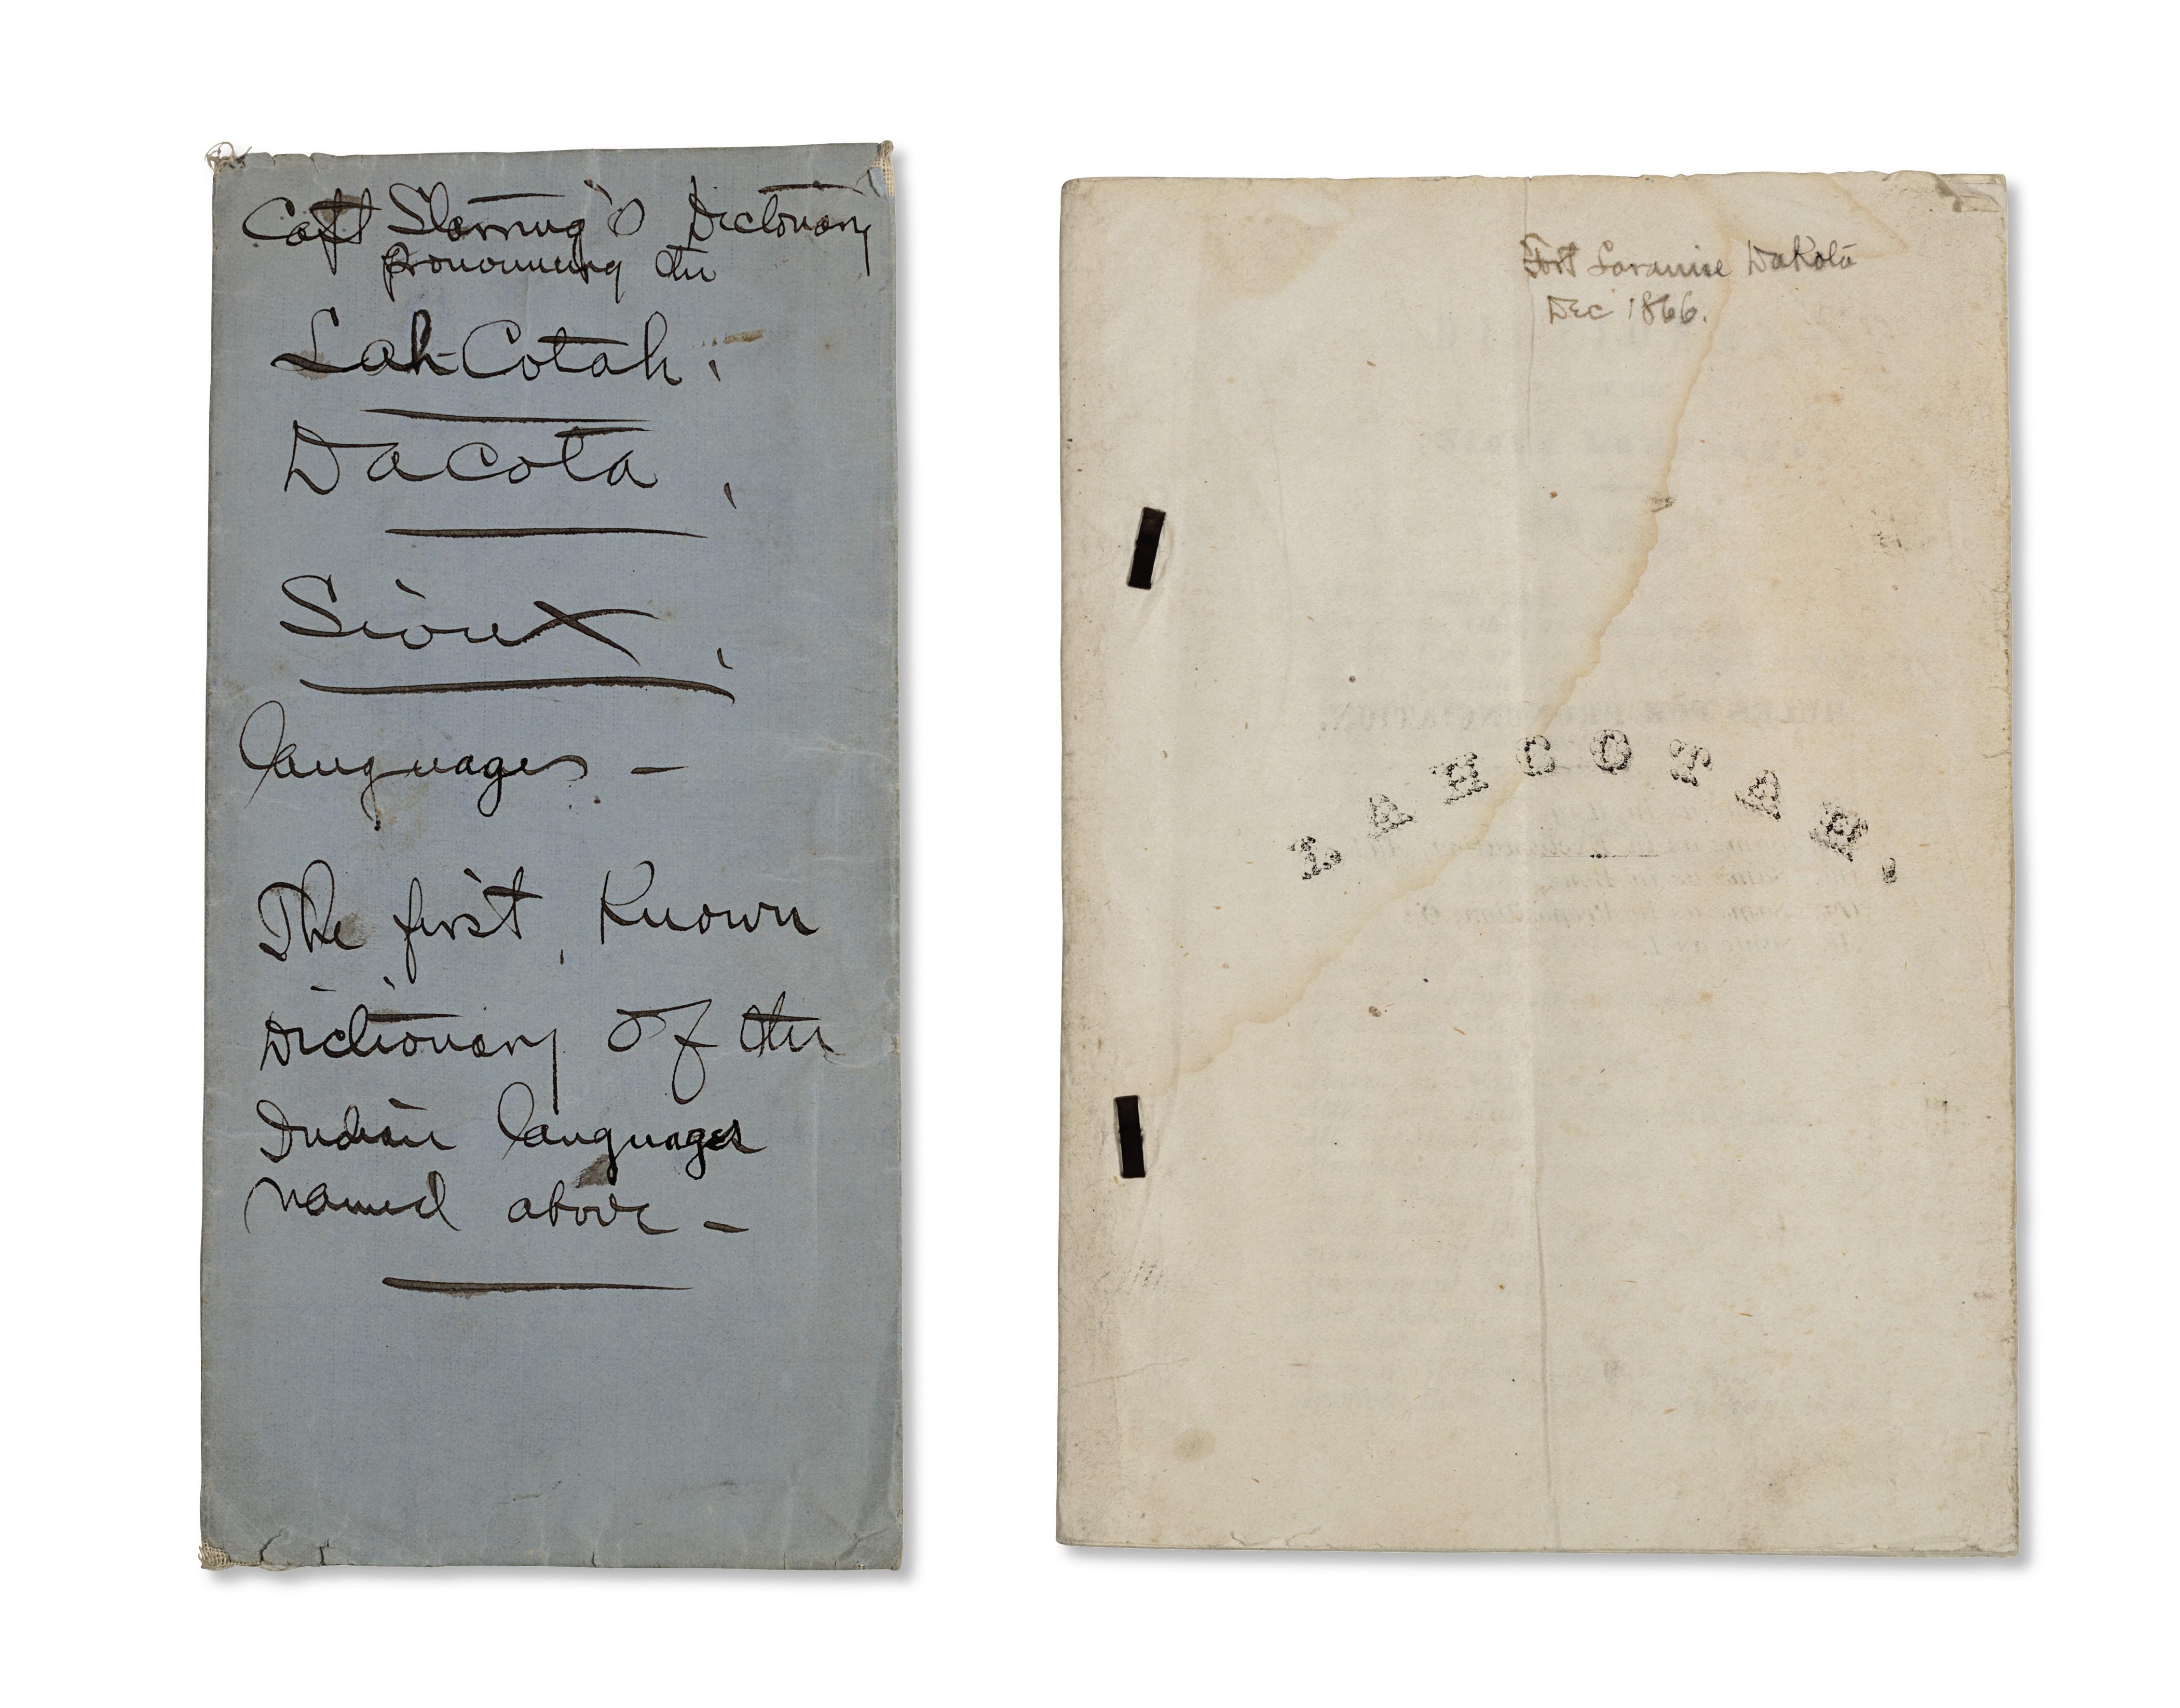 Capt Starring's Dictionary
pronouncing the
Lah-Cotah,
Dacota,
Sioux,
languages –
The first Known
Dictionary of the
Indian languages
named above –
Fort Laramie Dakota
Dec 1866.
LAHCOTAH.
RULES FOR PRONUNCIATION.